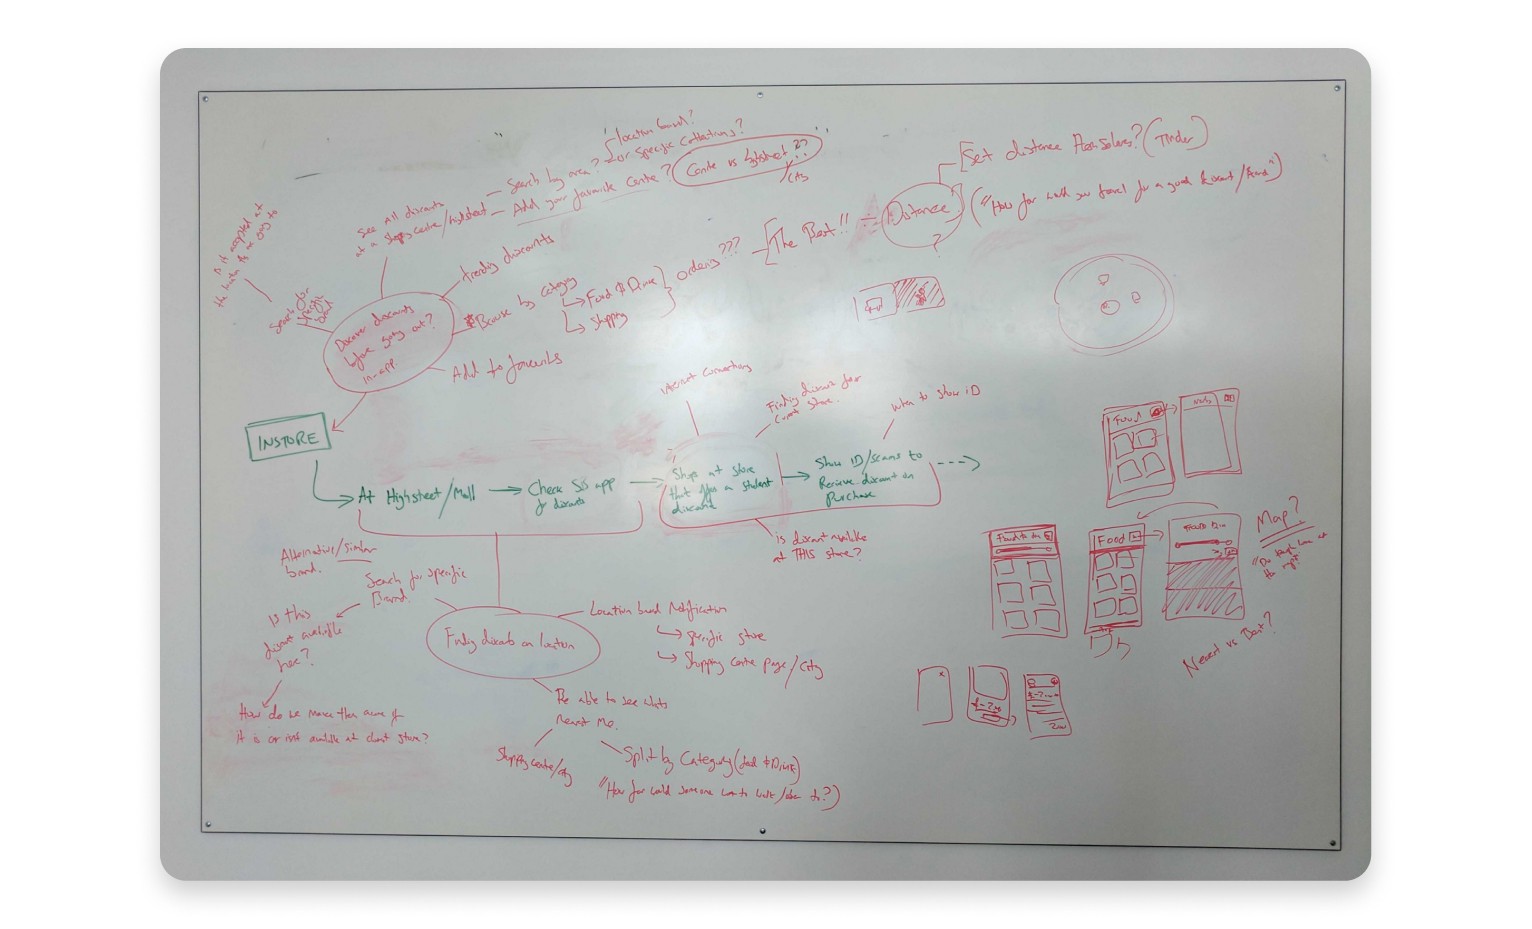 location based?
or specific collections?
Search by area?
Add your favourite centre?
Centre vs highstreet??
City
See all discounts
at a shopping centre/highstreet
Is it accepted at
the
going to
Search for
specific
brand
Trending discounts
Browse by category
Food & Drink
Shopping
Add to favourites
Discover discounts
before going out?
in-app
ordering???
The Best!!
Distance
?
Set distance themselves? (Tinder)
("How far would you travel for a good discount/
INSTORE
At Highstreet/Mall
Check SB's app
for discounts
Shops at store
that offers a student
discount
Show ID/scans to
Retrieve discount on
purchase
internet connections
Finding discount for
current store.
when to show iD
is discount available
at THIS store?
Alternative/similar
brand.
Search for specific
Brand.
Is this
discount available
here?
How do we make them aware if
it is or isn't available at client store?
Finding discounts on location
Location based Notification
Specific store
Shopping centre page/City
Be able to see whats
nearest me.
Shopping centre/city
Split by Category (food & Drink)
"How far would someone want to walk/
Food
Food
Map?
Nearest vs Best?